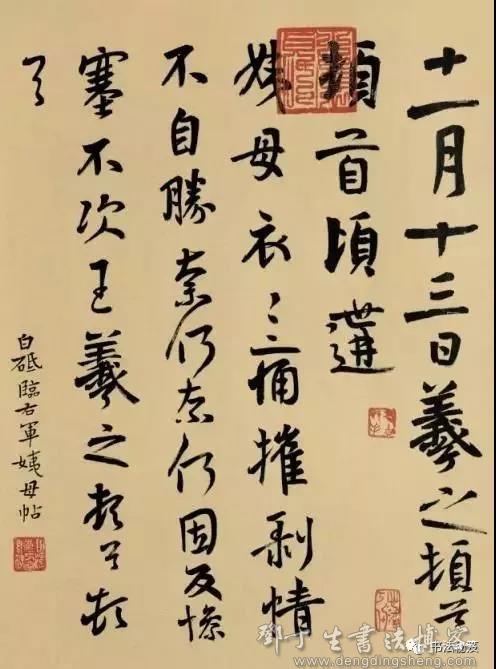 十一月十三日羲之頓首
頓首頃遘
姨母哀〻痛摧剥情
不自勝奈何奈何因反慘
塞不次王羲之頓首頓
首
白砥臨右軍姨母帖
鄧丁生書法博客
www.dengdingsheng.com